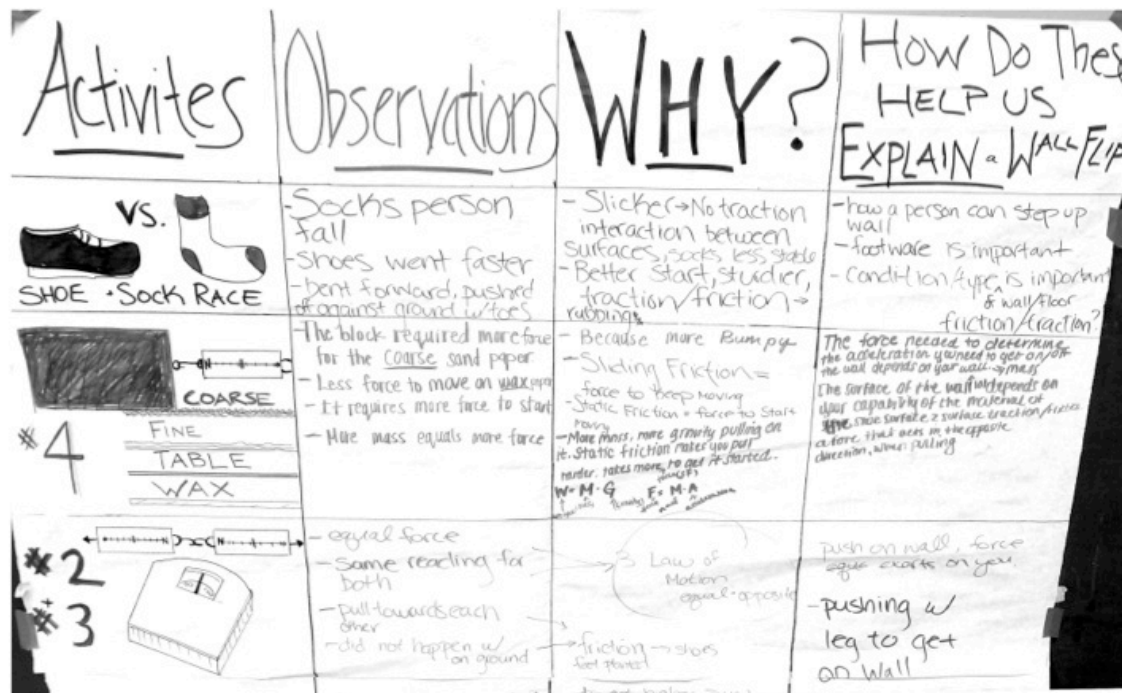 Activites
Observations
WHY?
HOW DO THES
HELP US
EXPLAIN a WALL FLIP
VS.
SHOE + SOCK RACE
- Socks person
fall
- Shoes went faster
- Bent forward, pushed
off against ground w/toes
- Slicker → No traction
interaction between
surfaces, socks less stable
- Better start, studier,
traction/friction →
rubbing
- how a person can step up
wall
- footware is important
- condition/type is important
of wall/floor
friction/traction?
#4
COARSE
FINE
TABLE
WAX
- The block required more force
for the coarse sand paper
- Less force to move on wax paper
- It requires more force to start
- More mass equals more force
- Because more Bumpy
- Sliding Friction =
force to keep moving
- Static Friction = force to Start
moving
- More mass, more gravity pulling on
it. Static friction makes you pull
harder. takes more to get it started.
W = M · G F = M · A
The force needed to determine
the acceleration you need to get on/off
the wall depends on your wall → mass
The surface of the wall depends on
your capability of the material of
the shoe surface & surface traction/friction
a force that acts in the opposite
direction, when pulling
#2
#3
- equal force
- Same reading for
both
- pull towards each
other
- did not happen w/
on ground
3 Law of
Motion
equal + opposite
friction → shoes
feet planted
push on wall, force
equal exerts on you
- pushing w/
leg to get
on wall